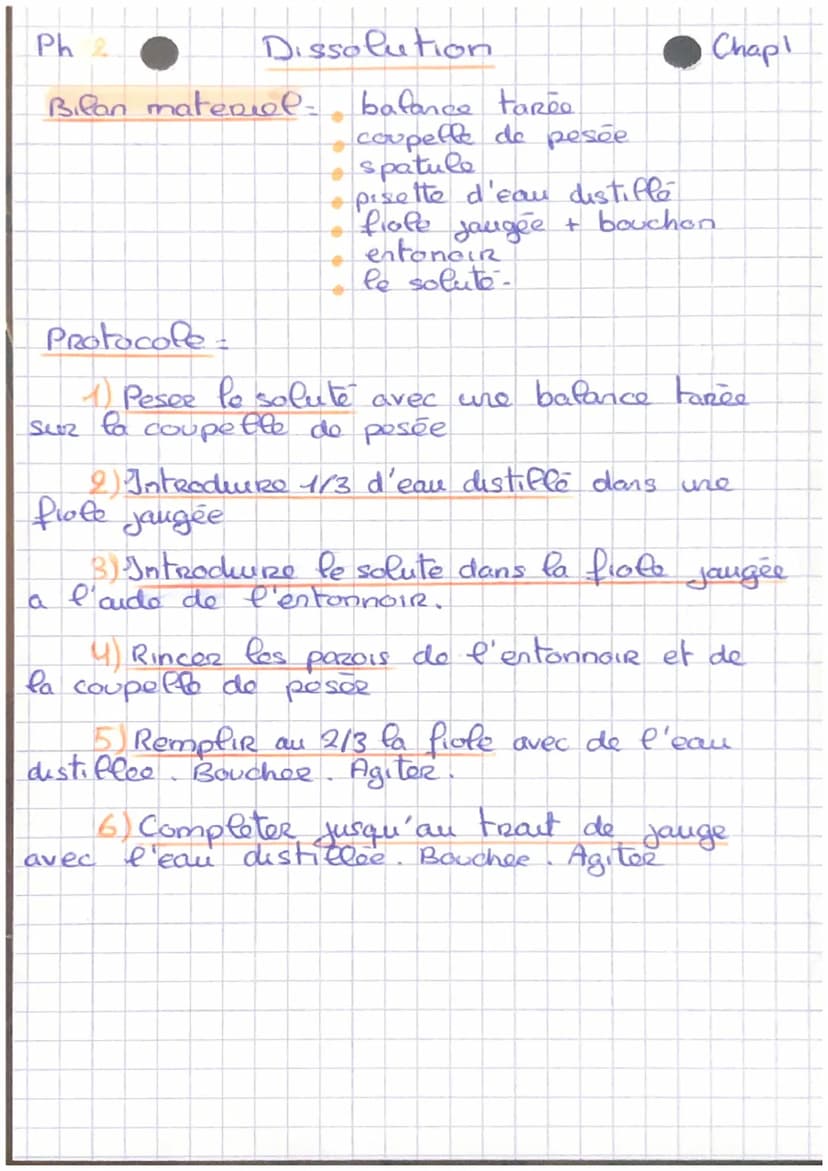 Ph 2 Dissolution Chap1
Bilan materiel = balance tarée
coupelle de pesée
spatule
pisette d'eau distillé
fiole jaugée + bouchon
entonoir
le soluté.
Protocole =
1) Peser le soluté avec une balance tarée
sur la coupelle de pesée
2) Introduire 1/3 d'eau distillé dans une
fiole jaugée
3) Introduire le solute dans la fiole jaugée
a l'aide de l'entonnoir.
4) Rincer les parois de l'entonnoir et de
la coupelle de pesée
5) Remplir au 2/3 la fiole avec de l'eau
distillee. Boucher. Agiter.
6) Completer jusqu'au trait de jauge
avec l'eau distillée. Boucher. Agiter